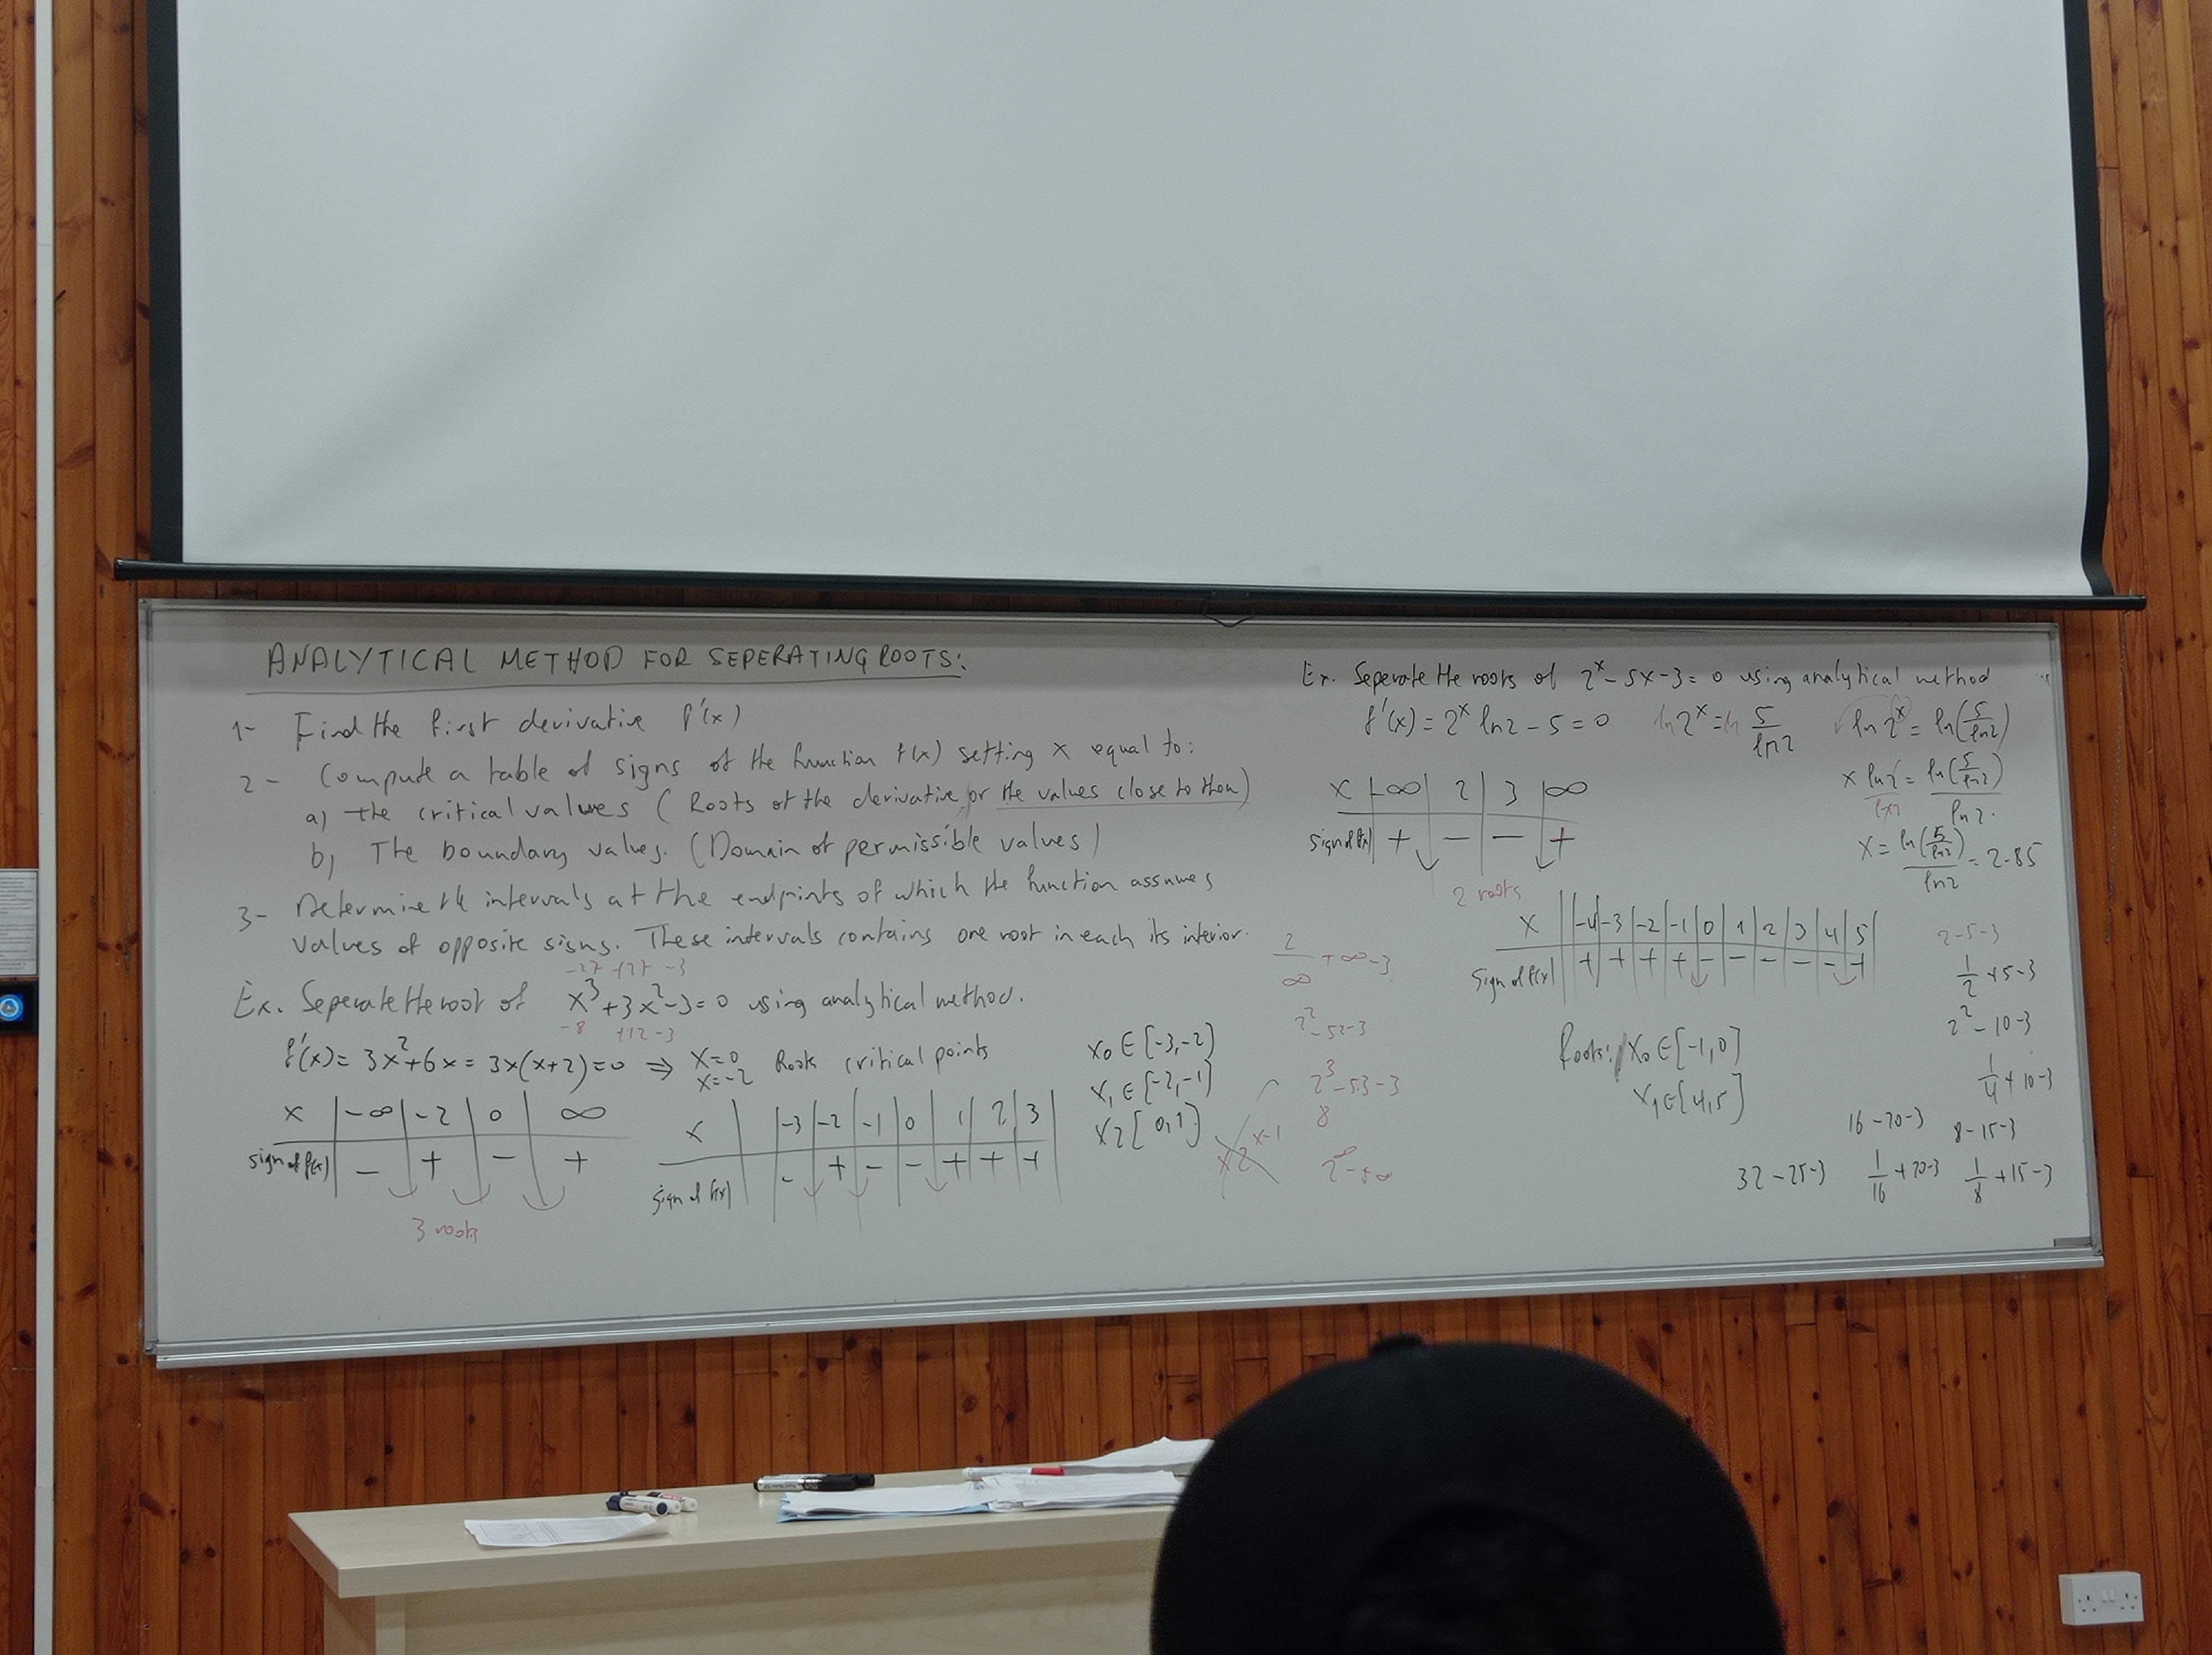 ANALYTICAL METHOD FOR SEPERATING ROOTS:
1- Find the first derivative f'(x)
2- Compute a table of signs of the function f(x) setting x equal to:
a) the critical values (Roots of the derivative or the values close to them)
b) The boundary values. (Domain of permissible values)
3- Determine the intervals at the endpoints of which the function assumes
values of opposite signs. These intervals contains one root in each its interior.
-27 +27 -3
Ex. Seperate the root of x³+3x²-3=0 using analytical method.
-8 +12-3
f'(x)= 3x²+6x = 3x(x+2)=0 ⇒ x=0 Roots critical points
x=-2
x | -∞ | -2 | 0 | ∞
sign of f(x) | - | + | - | +
3 roots
x | -3 | -2 | -1 | 0 | 1 | 2 | 3
sign of f(x) | - | + | - | - | + | + | +
x0 ∈ [-3,-2]
x1 ∈ [-2,-1]
x2 [0,1]
x2^x-1
Ex. Seperate the roots of 2^x - 5x - 3 = 0 using analytical method
f'(x) = 2^x ln2 - 5 = 0 ln 2^x = ln 5/ln2 ln 2^x = ln(5/ln2)
x ln2/ln2 = ln(5/ln2)/ln2.
x = ln(5/ln2)/ln2 = 2.85
x | -∞ | 2 | 3 | ∞
sign of f(x) | + | - | - | +
2 roots
x | -4 | -3 | -2 | -1 | 0 | 1 | 2 | 3 | 4 | 5
sign of f(x) | + | + | + | + | - | - | - | - | - | +
2/∞ +∞-3
2²-5.2-3
2³-5.3-3
8
2^∞-5∞
Roots: x0 ∈ [-1,0]
x1 ∈ [4,5]
2-5-3
1/2 +5-3
2²-10-3
1/4 +10-3
16-20-3 8-15-3
32-25-3 1/16 +20-3 1/8 +15-3